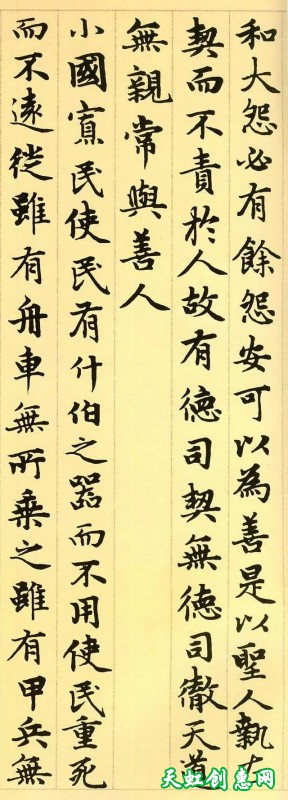 和大怨必有餘怨安可以為善是以聖人執左
契而不責於人故有德司契無德司徹天道
無親常與善人
小國寡民使民有什伯之器而不用使民重死
而不遠徙雖有舟車無所乘之雖有甲兵無
天虹创惠网